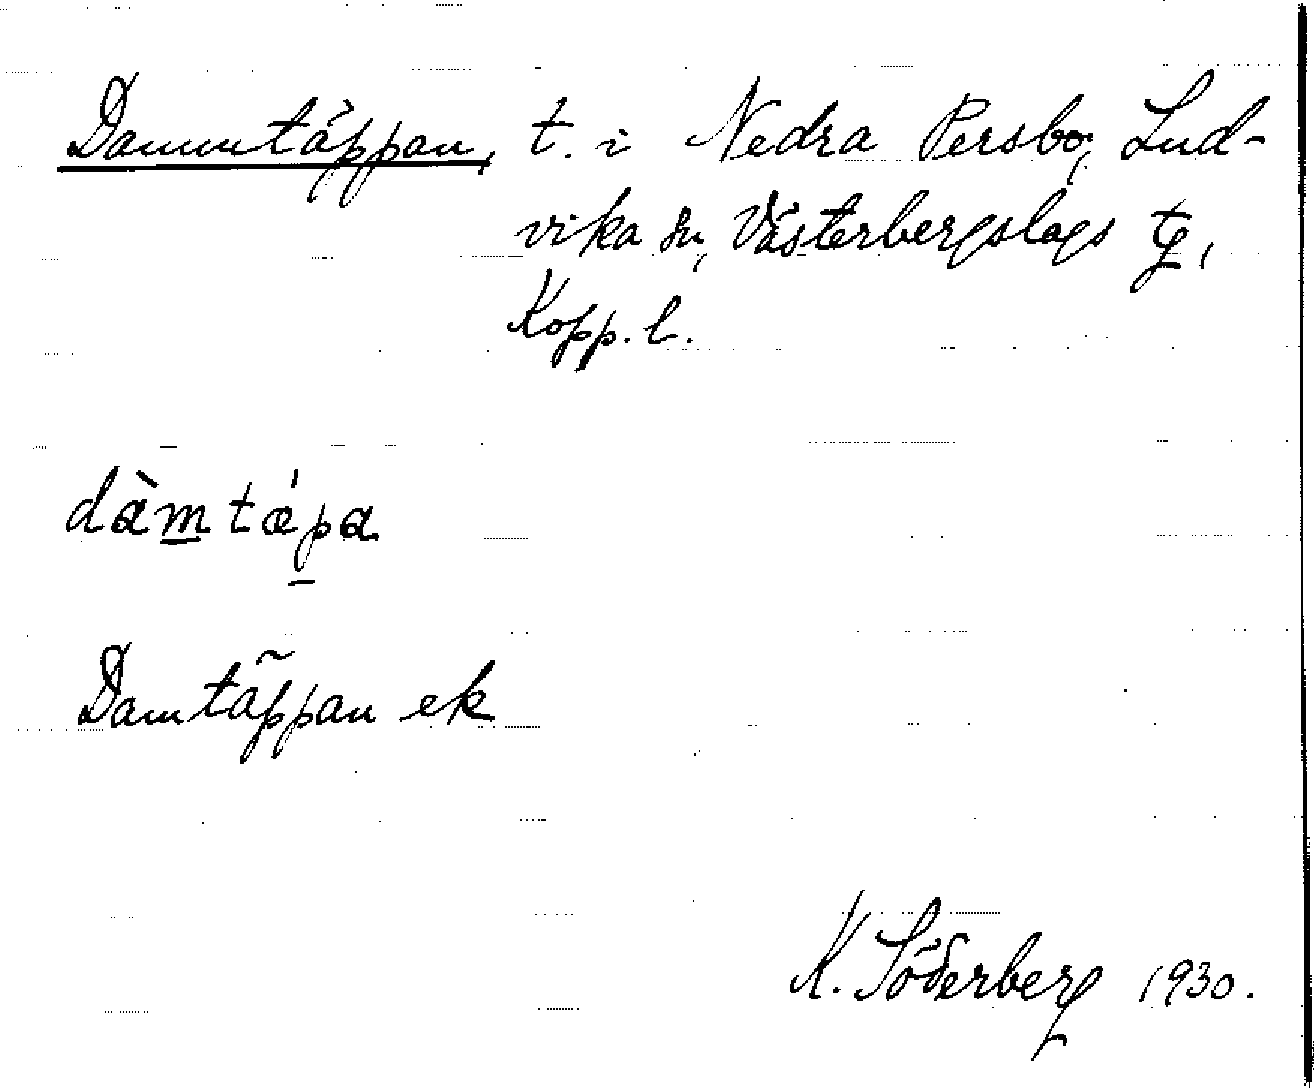 Dammtäppan, t. i Nedra Persbo, Lud-
vika sn, Västerbergslags tg,
Kopp. l.
dàmtǽpa
Damtäppan ek
K. Söderberg 1930.